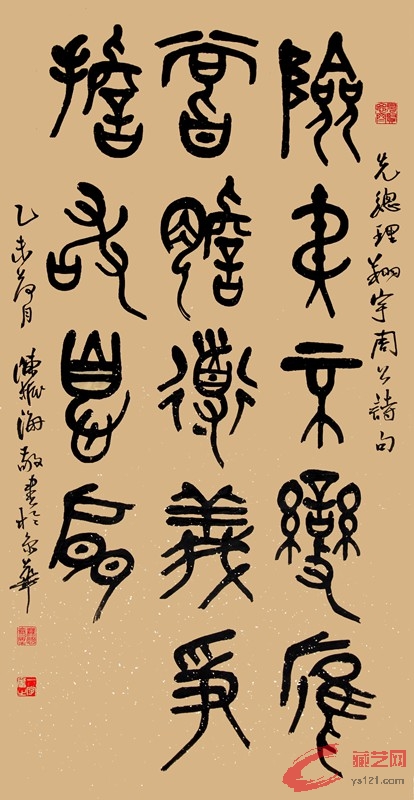 先總理翔宇周公詩句
險夷不變應
嘗膽道義爭
擔敢息肩
乙未荷月 陳振海敬書於京華
藏艺网
ys121.com